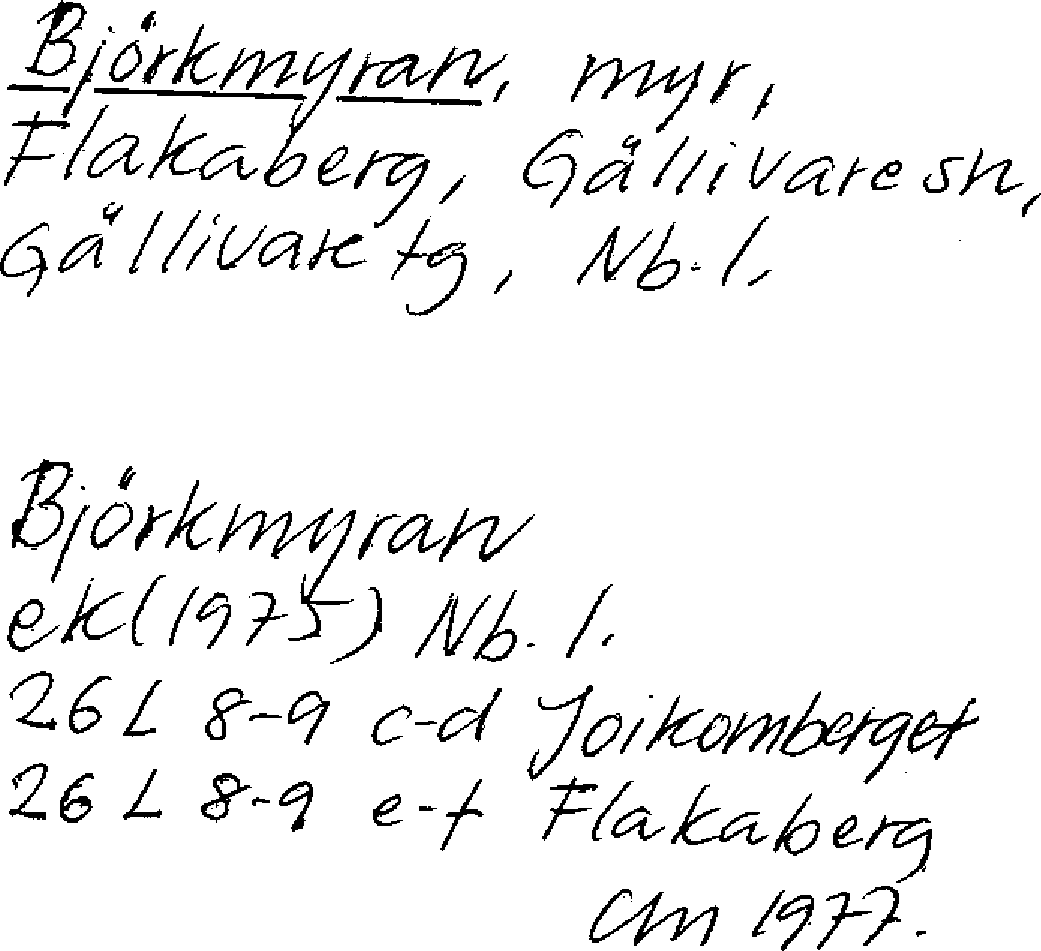 Björkmyran, myr,
Flakaberg, Gällivare sn,
Gällivare tg, Nb. l.
Björkmyran
ek (1975) Nb. l.
26 L 8-9 c-d Joikomberget
26 L 8-9 e-f Flakaberg
CM 1977.